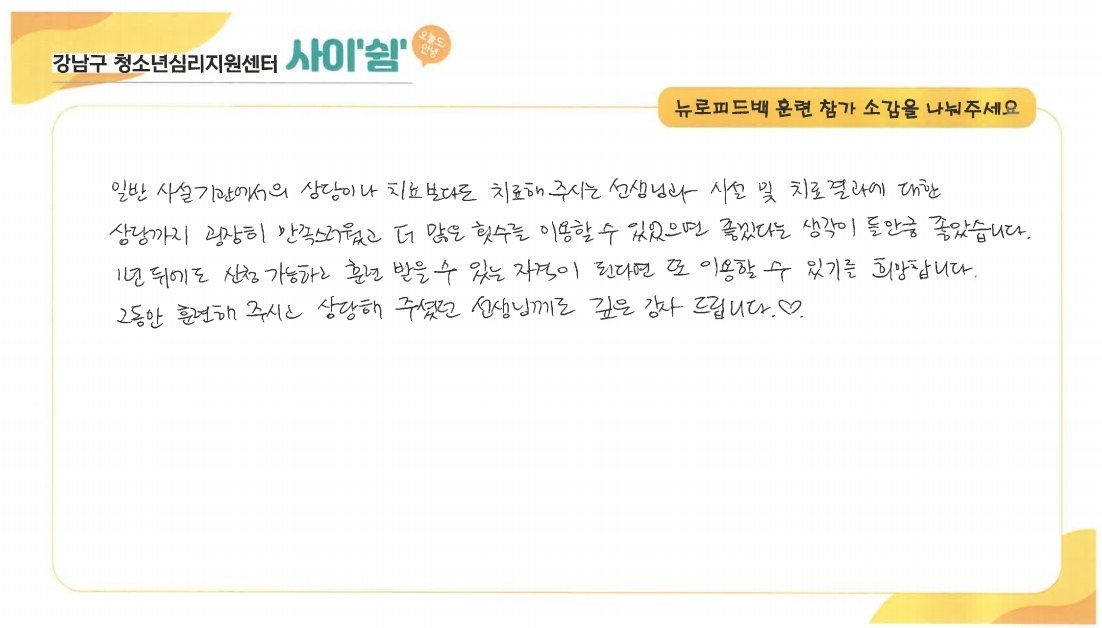 강남구 청소년심리지원센터 사이'쉼' 오늘도 안녕
뉴로피드백 훈련 참가 소감을 나눠주세요
일반 사설기관에서의 상담이나 치료보다도 치료해 주시는 선생님과 시설 및 치료결과에 대한
상담까지 굉장히 만족스러웠고 더 많은 횟수를 이용할 수 있었으면 좋겠다는 생각이 들만큼 좋았습니다.
1년 뒤에도 신청 가능하고 훈련 받을 수 있는 자격이 된다면 또 이용할 수 있기를 희망합니다.
그동안 훈련해 주시고 상담해 주셨던 선생님께도 깊은 감사 드립니다.♡.